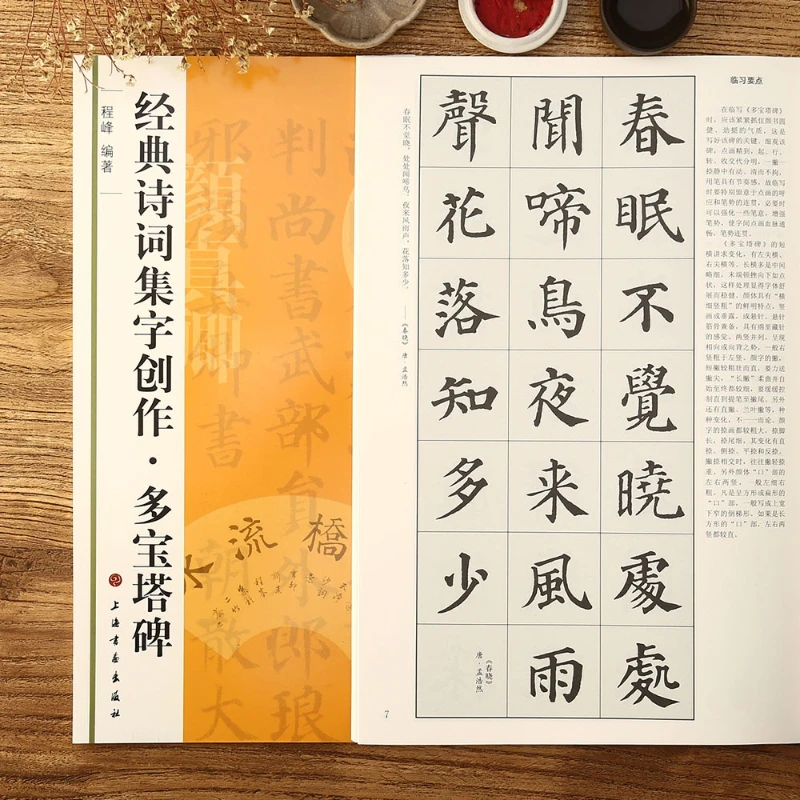 经典诗词集字创作·多宝塔碑
程峰 编著
上海书画出版社
颜真卿
判尚書武部員外郎琅
卿書
朝散大
橋流水
临习要点
在临写《多宝塔碑》
时，应该紧紧抓住颜书圆
健、劲挺的气质，这是
写好该碑的关键。细观该
碑，点画精到，起、行、
转、收交代分明，一撇一
捺静中有动，清而不拘，
用笔具有节奏感。故临写
时要特别留意于点画的呼
应和笔势的连贯，必要时
可以强化一些笔意，增强
笔势，使字间点画血脉通
畅，笔势连贯。
《多宝塔碑》的短
横讲求变化，有左尖横、
右尖横等。长横多是中间
略细，末端顿挫向下如点
状，这样处理显得字体舒
展而稳健。颜体具有“横
细竖粗”的鲜明特点，竖
画或垂露，或悬针，悬针
筋骨兼备，具有绵里藏针
的感觉。两竖并列，呈现
相向或向背之势，一般右
竖粗于左竖。颜字的撇，
短撇较粗壮而直，要力送
撇尖，“长撇”柔曲并自
始至终都较细，要缓缓控
制直到提笔至撇尾。另外
还有直撇、兰叶撇等，种
种变化，不一一而论。颜
字的捺画都较粗大，捺脚
长、捺尾细，其变化有直
捺、侧捺、平捺和反捺。
撇捺相交时，往往撇轻捺
重。另外颜体“口”部的
左右两竖，一般左细右
粗。凡是呈方形或扁形的
“口”部，一般写成上宽
下窄的倒梯形，如果是长
方形的“口”部，左右两
竖都较直。
春眠不覺曉處處
聞啼鳥夜来風雨
聲花落知多少
《春晓》
唐·孟浩然
春眠不觉晓，处处闻啼鸟。夜来风雨声，花落知多少。 ——《春晓》 唐 孟浩然
7